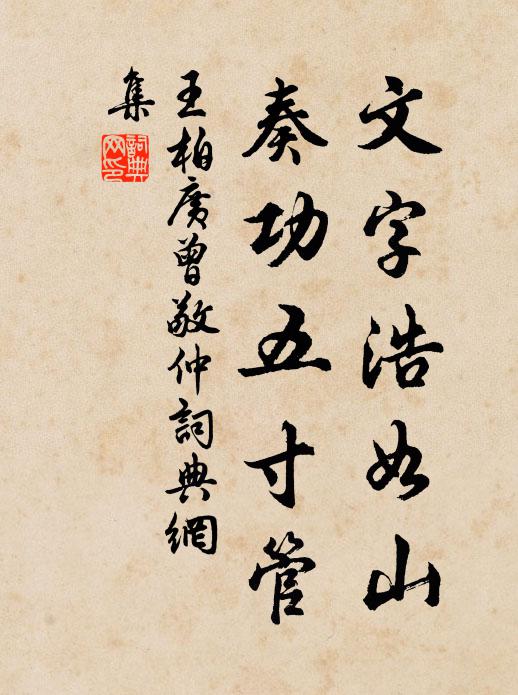 文字浩如山
奏功五寸管
王柏廣曾敬仲詞典網
集
詞典
网印